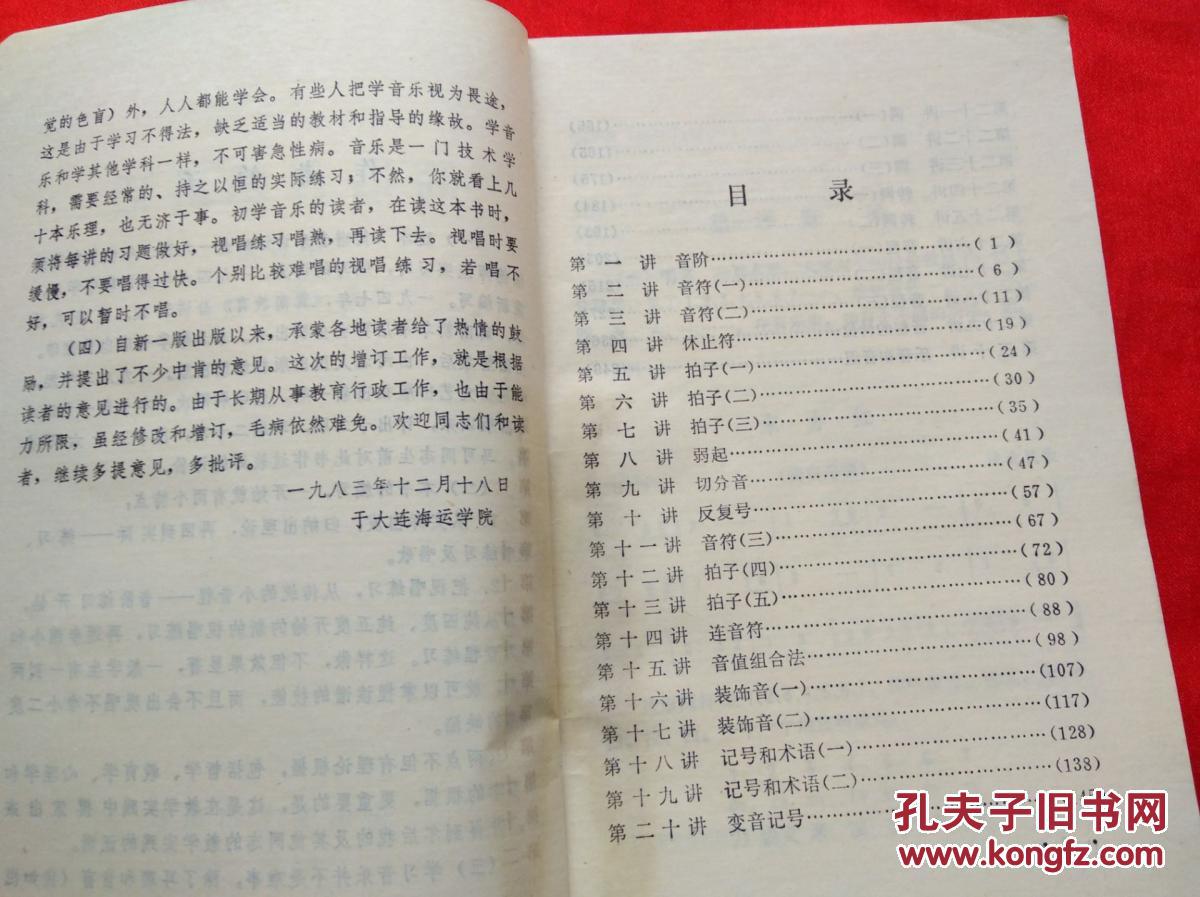 觉的色盲）外，人人都能学会。有些人把学音乐视为畏途，
这是由于学习不得法，缺乏适当的教材和指导的缘故。学音
乐和学其他学科一样，不可害急性病。音乐是一门技术学
科，需要经常的、持之以恒的实际练习；不然，你就看上几
十本乐理，也无济于事。初学音乐的读者，在读这本书时，
须将每讲的习题做好，视唱练习唱熟，再读下去。视唱时要
缓慢，不要唱得过快。个别比较难唱的视唱练习，若唱不
好，可以暂时不唱。
（四）自新一版出版以来，承蒙各地读者给了热情的鼓
励，并提出了不少中肯的意见。这次的增订工作，就是根据
读者的意见进行的。由于长期从事教育行政工作，也由于能
力所限，虽经修改和增订，毛病依然难免。欢迎同志们和读
者，继续多提意见，多批评。
一九八三年十二月十八日
于大连海运学院
目 录
第一讲 音阶……………………………（1）
第二讲 音符(一)…………………………（6）
第三讲 音符(二)…………………………（11）
第四讲 休止符…………………………（19）
第五讲 拍子(一)…………………………（24）
第六讲 拍子(二)…………………………（30）
第七讲 拍子(三)…………………………（35）
第八讲 弱起……………………………（41）
第九讲 切分音…………………………（47）
第十讲 反复号…………………………（57）
第十一讲 音符(三)………………………（67）
第十二讲 拍子(四)………………………（72）
第十三讲 拍子(五)………………………（80）
第十四讲 连音符………………………（88）
第十五讲 音值组合法……………………（98）
第十六讲 装饰音(一)……………………(107)
第十七讲 装饰音(二)……………………(117)
第十八讲 记号和术语(一)………………(128)
第十九讲 记号和术语(二)………………(138)
第二十讲 变音记号
孔夫子旧书网
www.kongfz.com